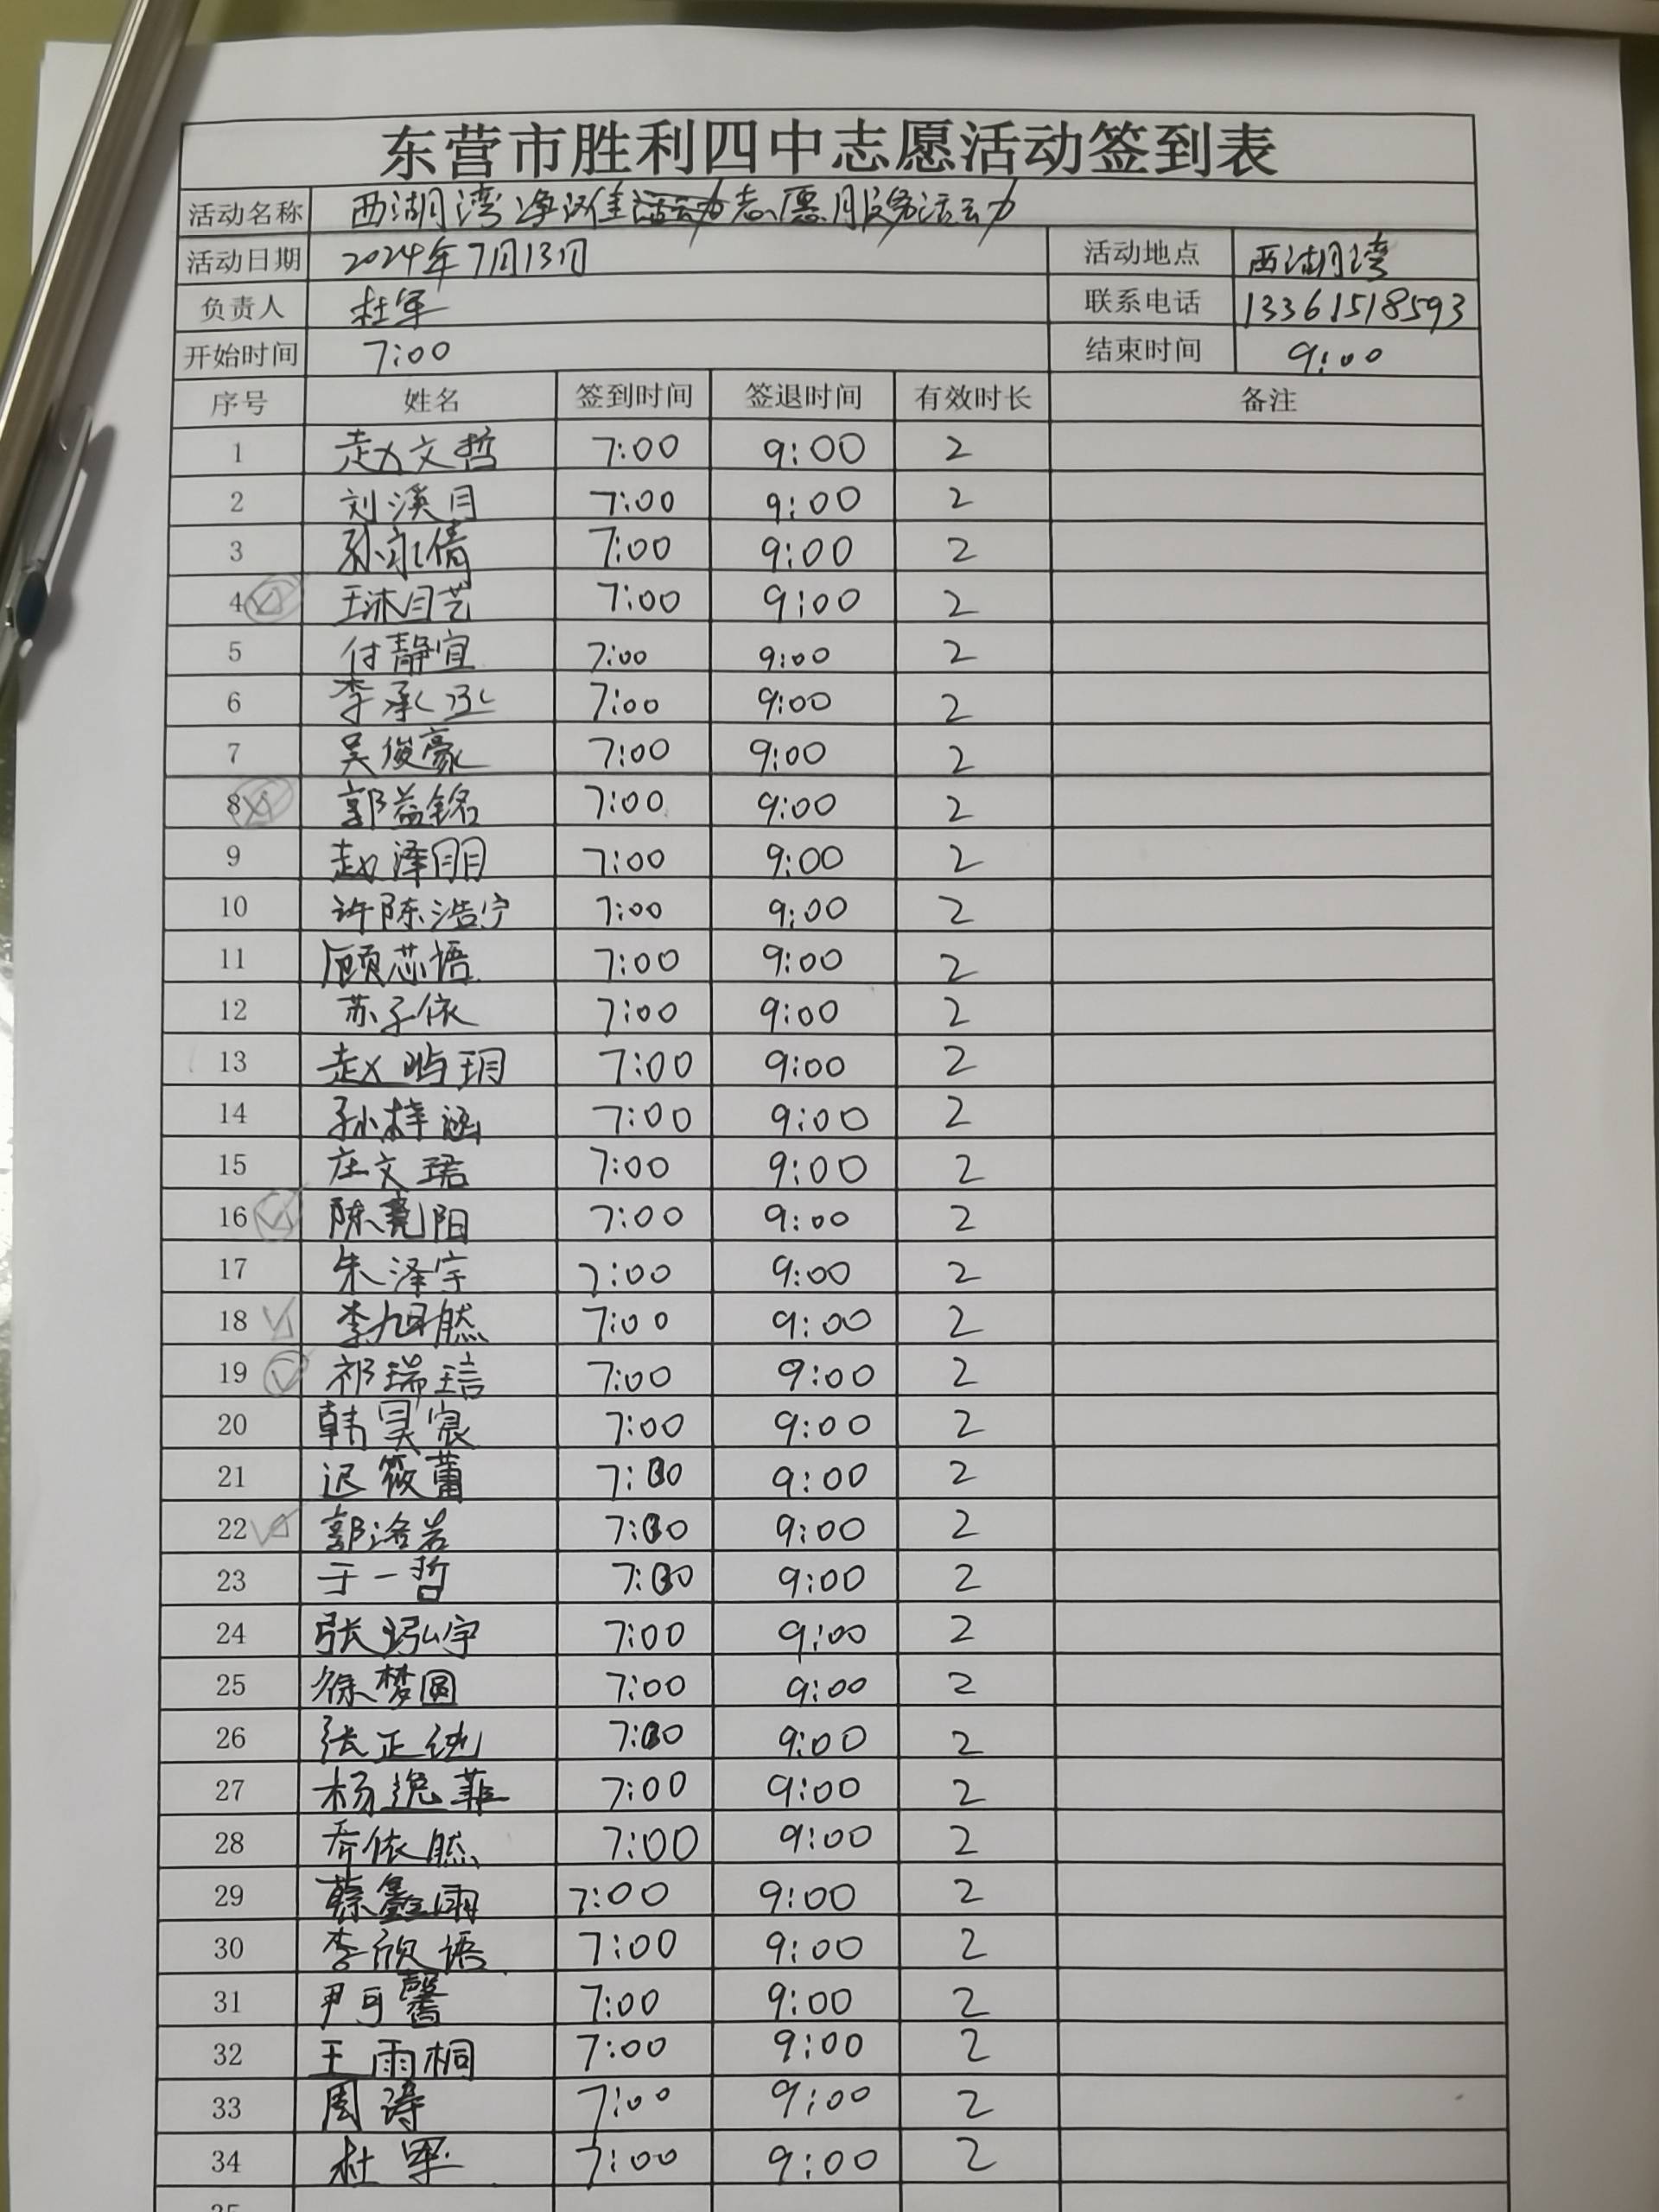 东营市胜利四中志愿活动签到表
活动名称 西湖湾净滩活动志愿服务活动
活动日期 2024年7月13日 活动地点 西湖湾
负责人 杜军 联系电话 13361518593
开始时间 7:00 结束时间 9:00
序号 姓名 签到时间 签退时间 有效时长 备注
1 赵文哲 7:00 9:00 2
2 刘溪月 7:00 9:00 2
3 孙永倩 7:00 9:00 2
4 王沐月艺 7:00 9:00 2
5 付静宜 7:00 9:00 2
6 李承泓 7:00 9:00 2
7 吴俊豪 7:00 9:00 2
8 郭益铭 7:00 9:00 2
9 赵泽朋 7:00 9:00 2
10 许陈浩宁 7:00 9:00 2
11 顾芯语 7:00 9:00 2
12 苏子依 7:00 9:00 2
13 赵屿玥 7:00 9:00 2
14 孙梓涵 7:00 9:00 2
15 庄文珺 7:00 9:00 2
16 陈亮阳 7:00 9:00 2
17 朱泽宇 7:00 9:00 2
18 李旭然 7:00 9:00 2
19 祁瑞琂 7:00 9:00 2
20 韩昊宸 7:00 9:00 2
21 迟筱莆 7:00 9:00 2
22 郭洺岩 7:00 9:00 2
23 于一哲 7:00 9:00 2
24 张泓宇 7:00 9:00 2
25 徐梦圆 7:00 9:00 2
26 张正纯 7:00 9:00 2
27 杨逸菲 7:00 9:00 2
28 乔依然 7:00 9:00 2
29 蔡鑫雨 7:00 9:00 2
30 李欣语 7:00 9:00 2
31 尹可馨 7:00 9:00 2
32 王雨桐 7:00 9:00 2
33 周涛 7:00 9:00 2
34 杜军 7:00 9:00 2